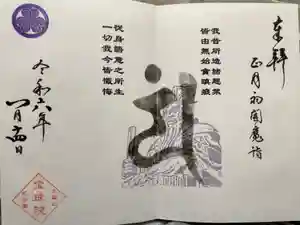 奉拝
正月初閻魔詣
我昔所造諸悪業
皆由無始貪瞋痴
従身語意之所生
一切我今皆懺悔
令和六年
一月十四日